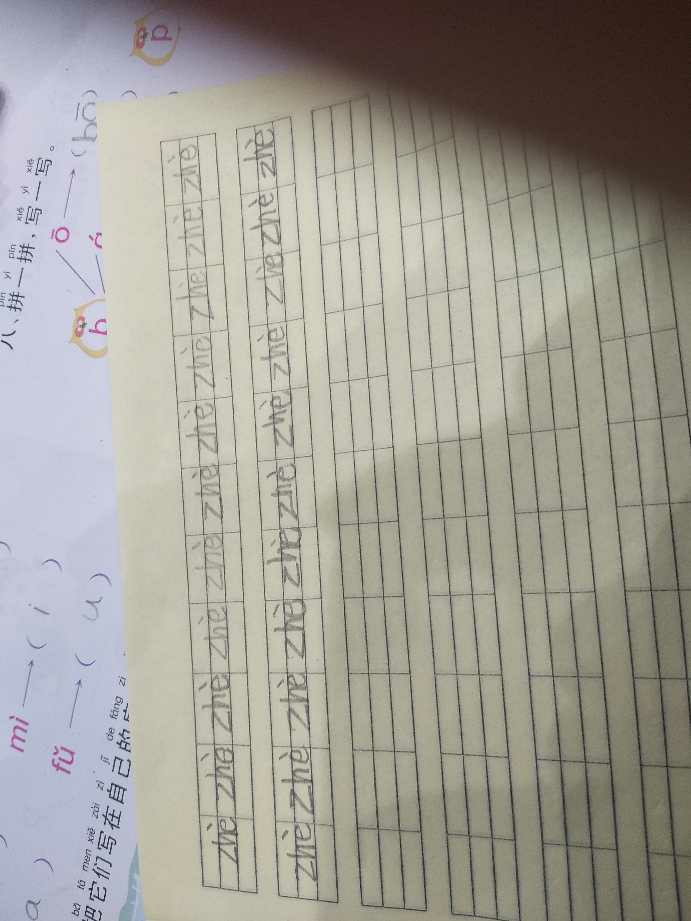 mì → ( i )
fǔ → ( u )
bǎ tā men xiě zài zì jǐ de fáng zi
把它们写在自己的
pīn yì pīn xiě yì xiě
八、拼一拼，写一写。
b ō → (bō)
á
p
zhè zhè zhè zhè zhè zhè zhè zhè zhè zhè zhè
zhè zhè zhè zhè zhè zhè zhè zhè zhè zhè zhè